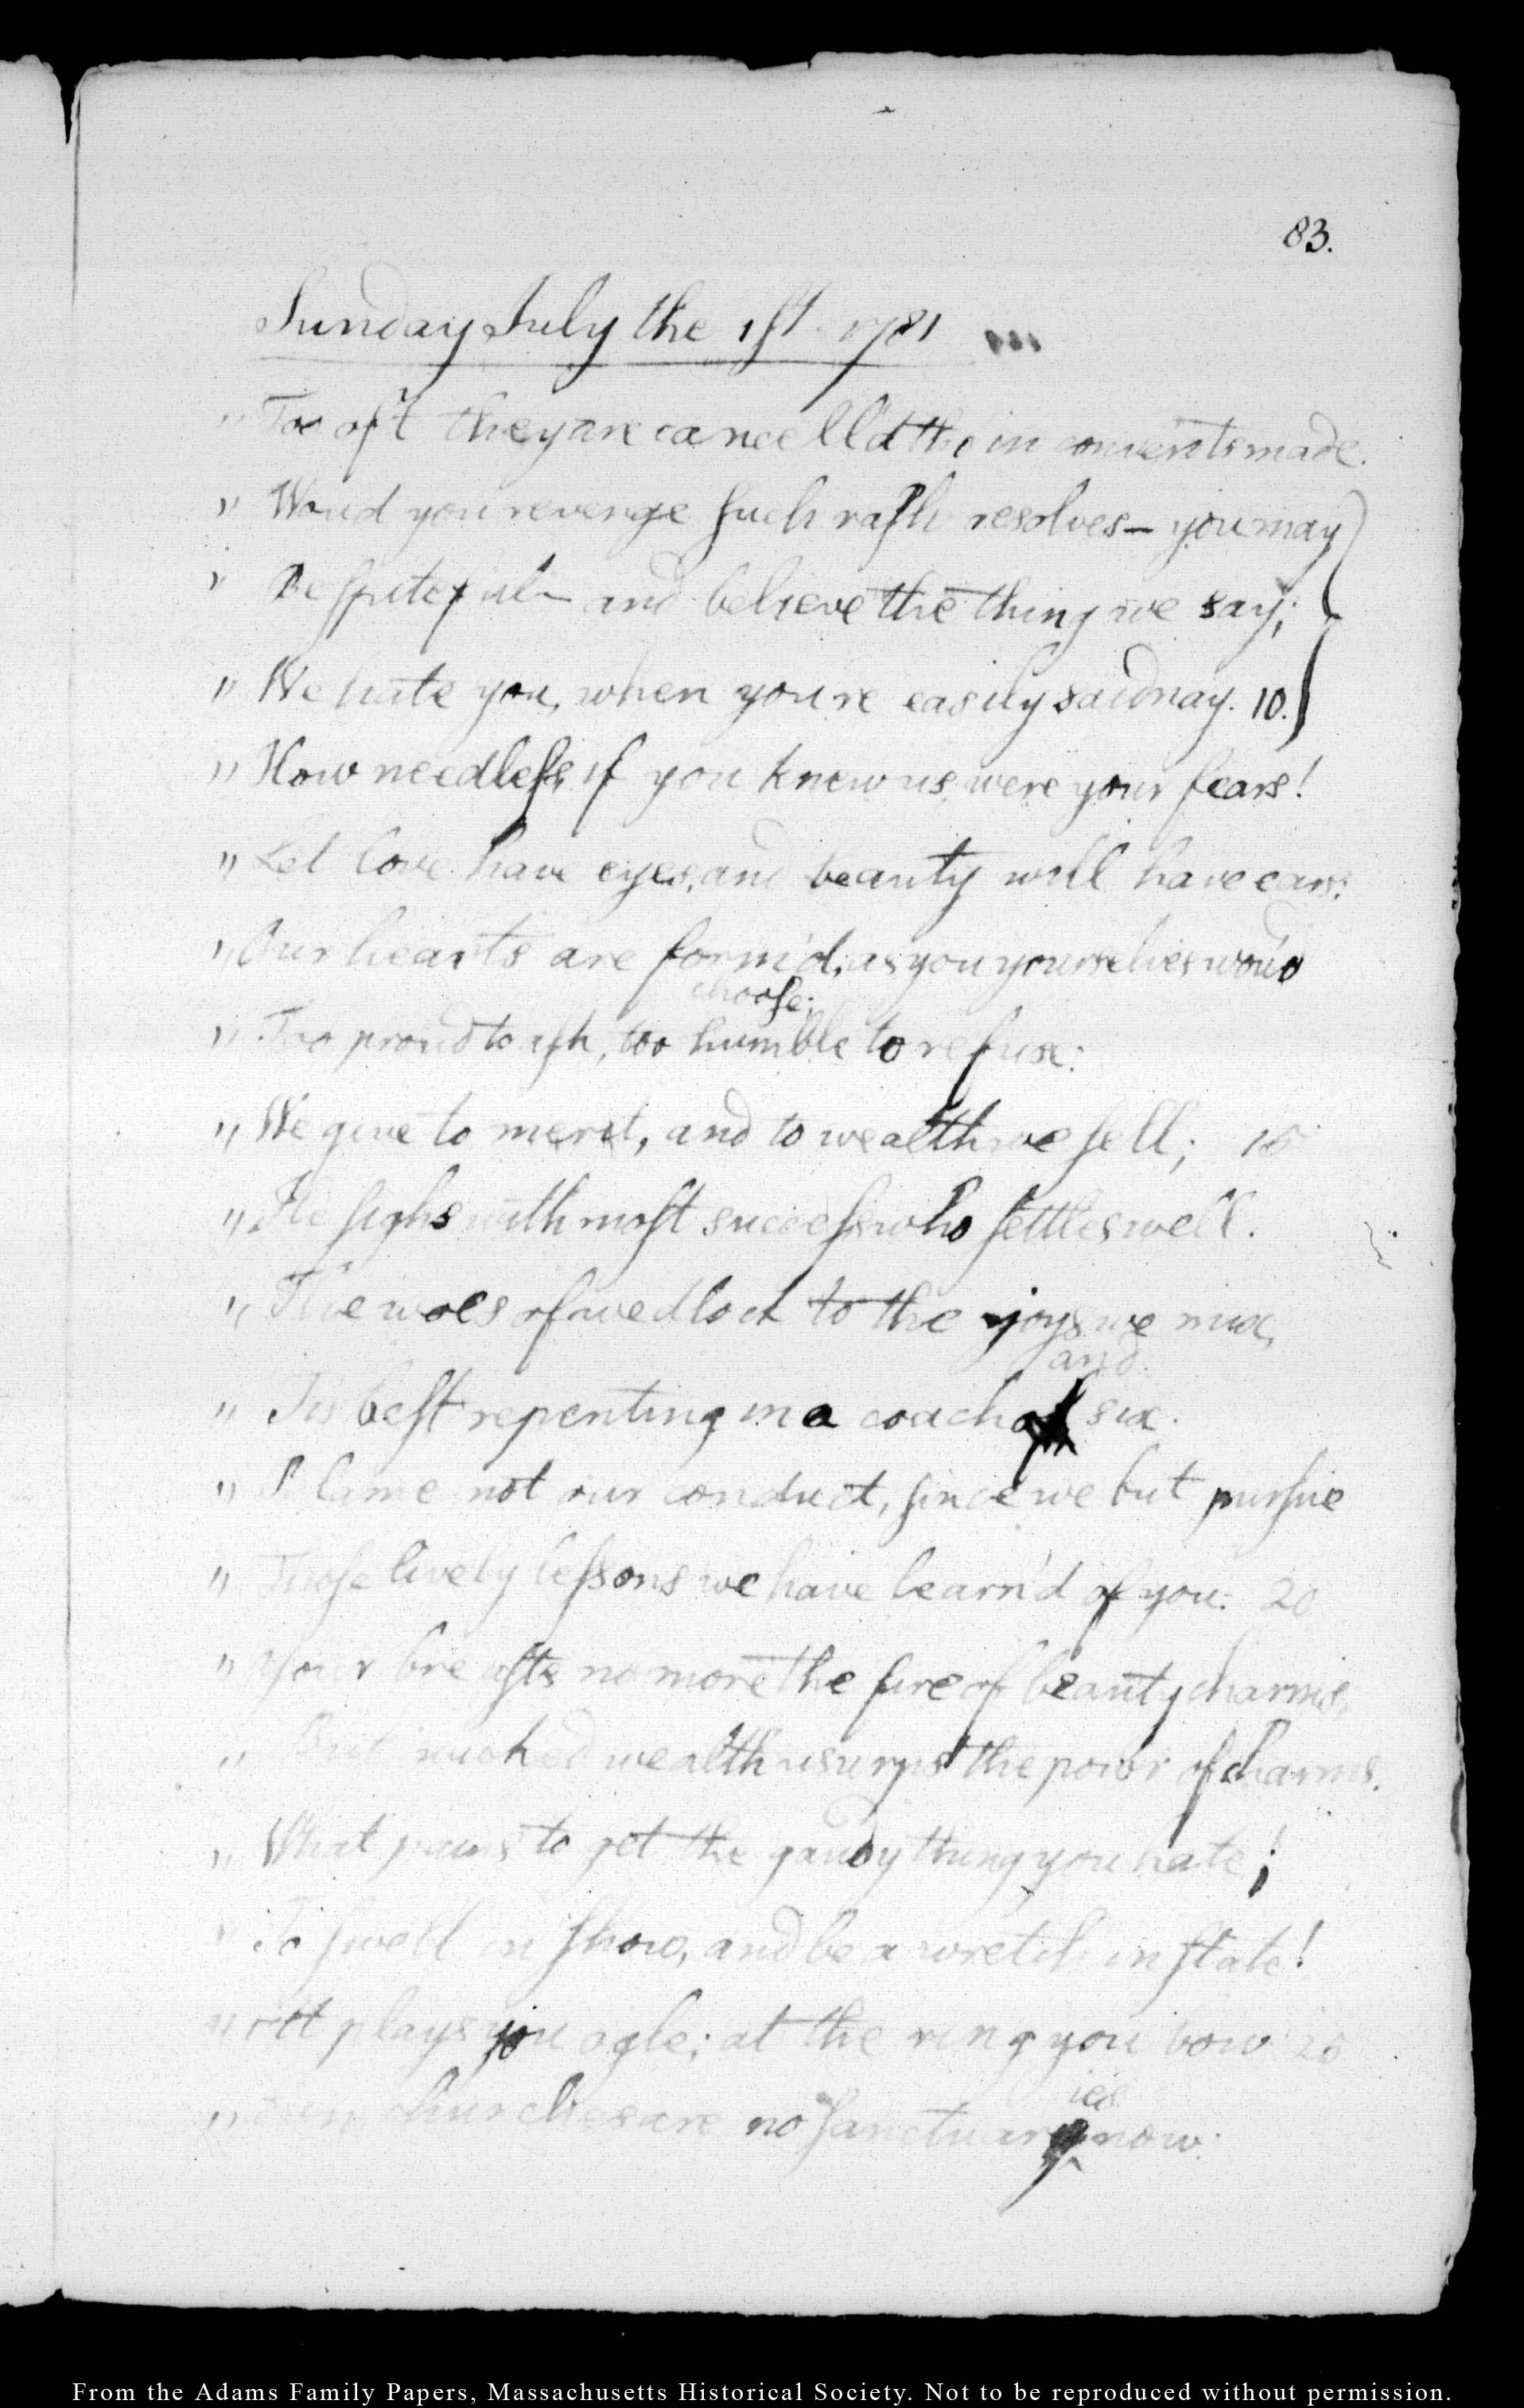 83.
Sunday July the 1st 1781
" Too oft they are cancell'd tho in convents made.
" Woud you revenge such rash resolves — you may
" Be spiteful — and believe the thing we say;
" We hate you, when you're easily said nay. 10.
" How needless, if you knew us, were your fears!
" Let love have eyes, and beauty will have ears.
" Our hearts are form'd, as you yourselves wou'd
choose;
" Too proud to ask, too humble to refuse:
" We give to merit, and to wealth we sell; 15
" He sighs with most success who settles well.
" The woes of wedlock to the joys we mix,
and
" Tis best repenting in a coach six.
" Blame not our conduct, since we but pursue
" Those lively lessons we have learn'd of you: 20
" Your breasts no more the fire of beauty charms,
" But wicked wealth usurps the power of charms.
" What pains to get the gaudy thing you hate;
" To swell in show, and be a wretch in state!
" At plays you ogle; at the ring you bow 25
ies
" Even churches are no sanctuary now:
From the Adams Family Papers, Massachusetts Historical Society. Not to be reproduced without permission.